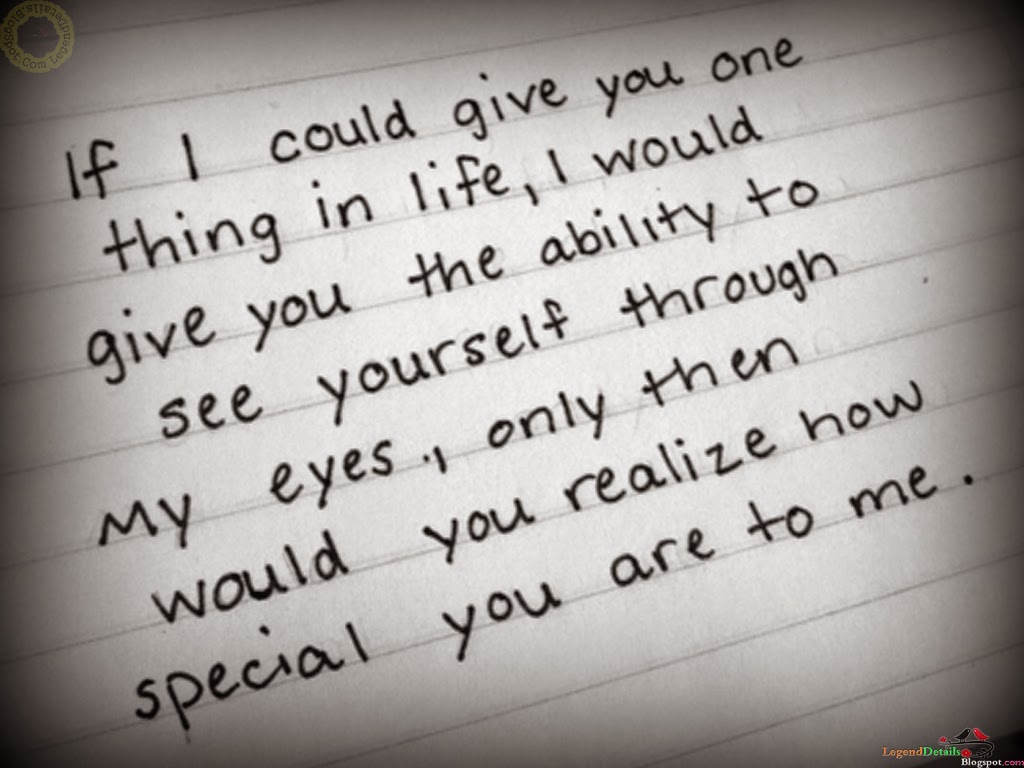 If I could give you one
thing in life, I would
give you the ability to
see yourself through
my eyes., only then
would you realize how
special you are to me.
LegendDetails
Blogspot.com
LegendDetails.Blogspot.Com